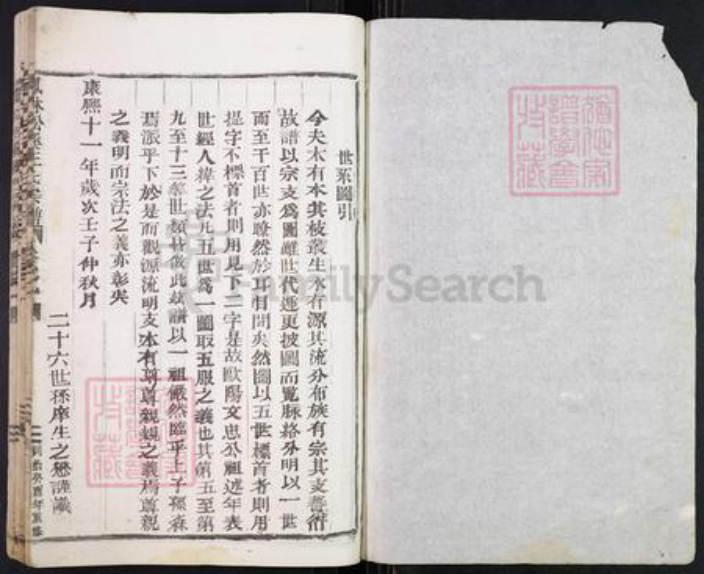 世系圖引
今夫木有本其枝叢生水有源其流分布族有宗其支蕃衍
故譜以宗支為圖雖世代遞更披圖而覽脉絡分明以一世
而至千百世亦瞭然於耳目間矣然圖以五世標首者則用
提字不標首者則用見下二字是故歐陽文忠公祖述年表
世經人緯之法凡五世為一圖取五服之義也其第五至第
九至十三等世類皆倣此茲譜以一祖儼然臨乎上子孫森
焉派乎下於是而觀源流明支本有尊尊親親之義焉尊親
之義明而宗法之義亦彰矣
康熙十一年歲次壬子仲秋月
二十六世孫庠生之懋謹識
FamilySearch